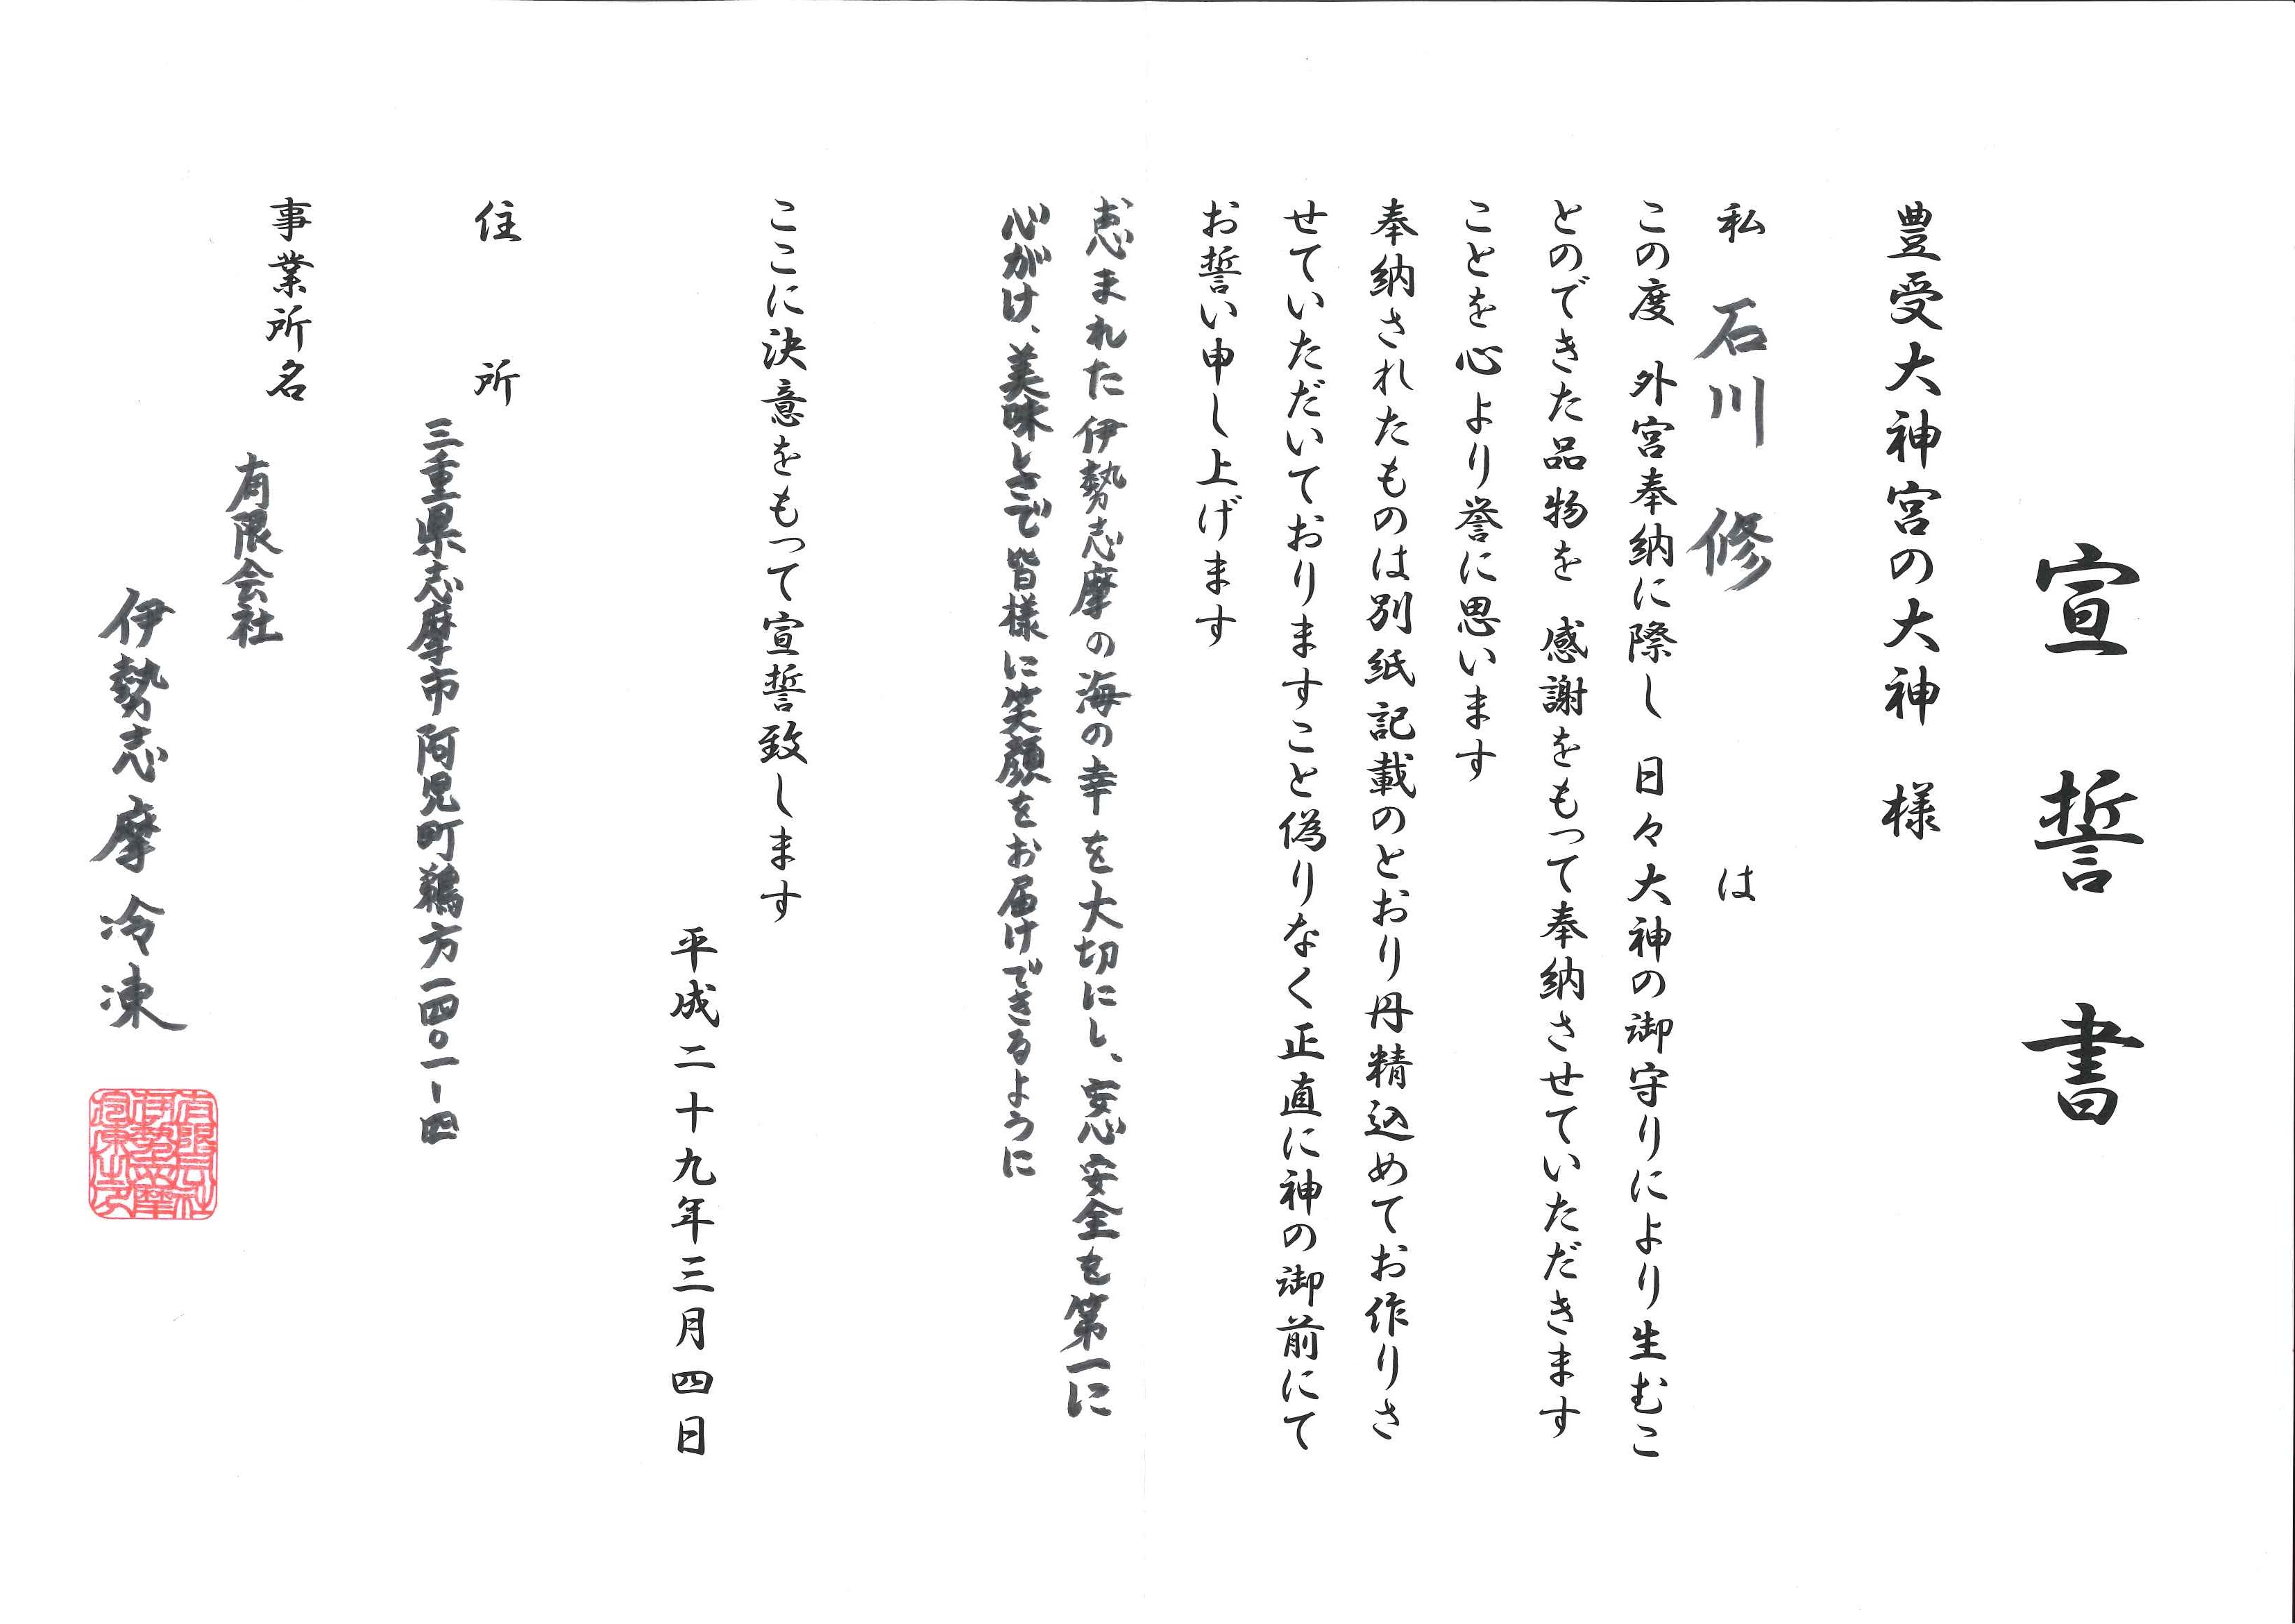 宣誓書
豊受大神宮の大神　様
私　石川　修　は
この度　外宮奉納に際し　日々大神の御守りにより生むこ
とのできた品物を　感謝をもって奉納させていただきます
ことを心より誉に思います
奉納されたものは別紙記載のとおり丹精込めてお作りさ
せていただいておりますこと偽りなく正直に神の御前にて
お誓い申し上げます
恵まれた伊勢志摩の海の幸を大切にし、安心安全を第一に
心がけ、美味しさで皆様に笑顔をお届けできるように
ここに決意をもって宣誓致します
平成二十九年三月四日
住所
三重県志摩市阿児町鵜方一四〇一-四
事業所名
有限会社
伊勢志摩冷凍
有限会社
伊勢志摩
冷凍之印